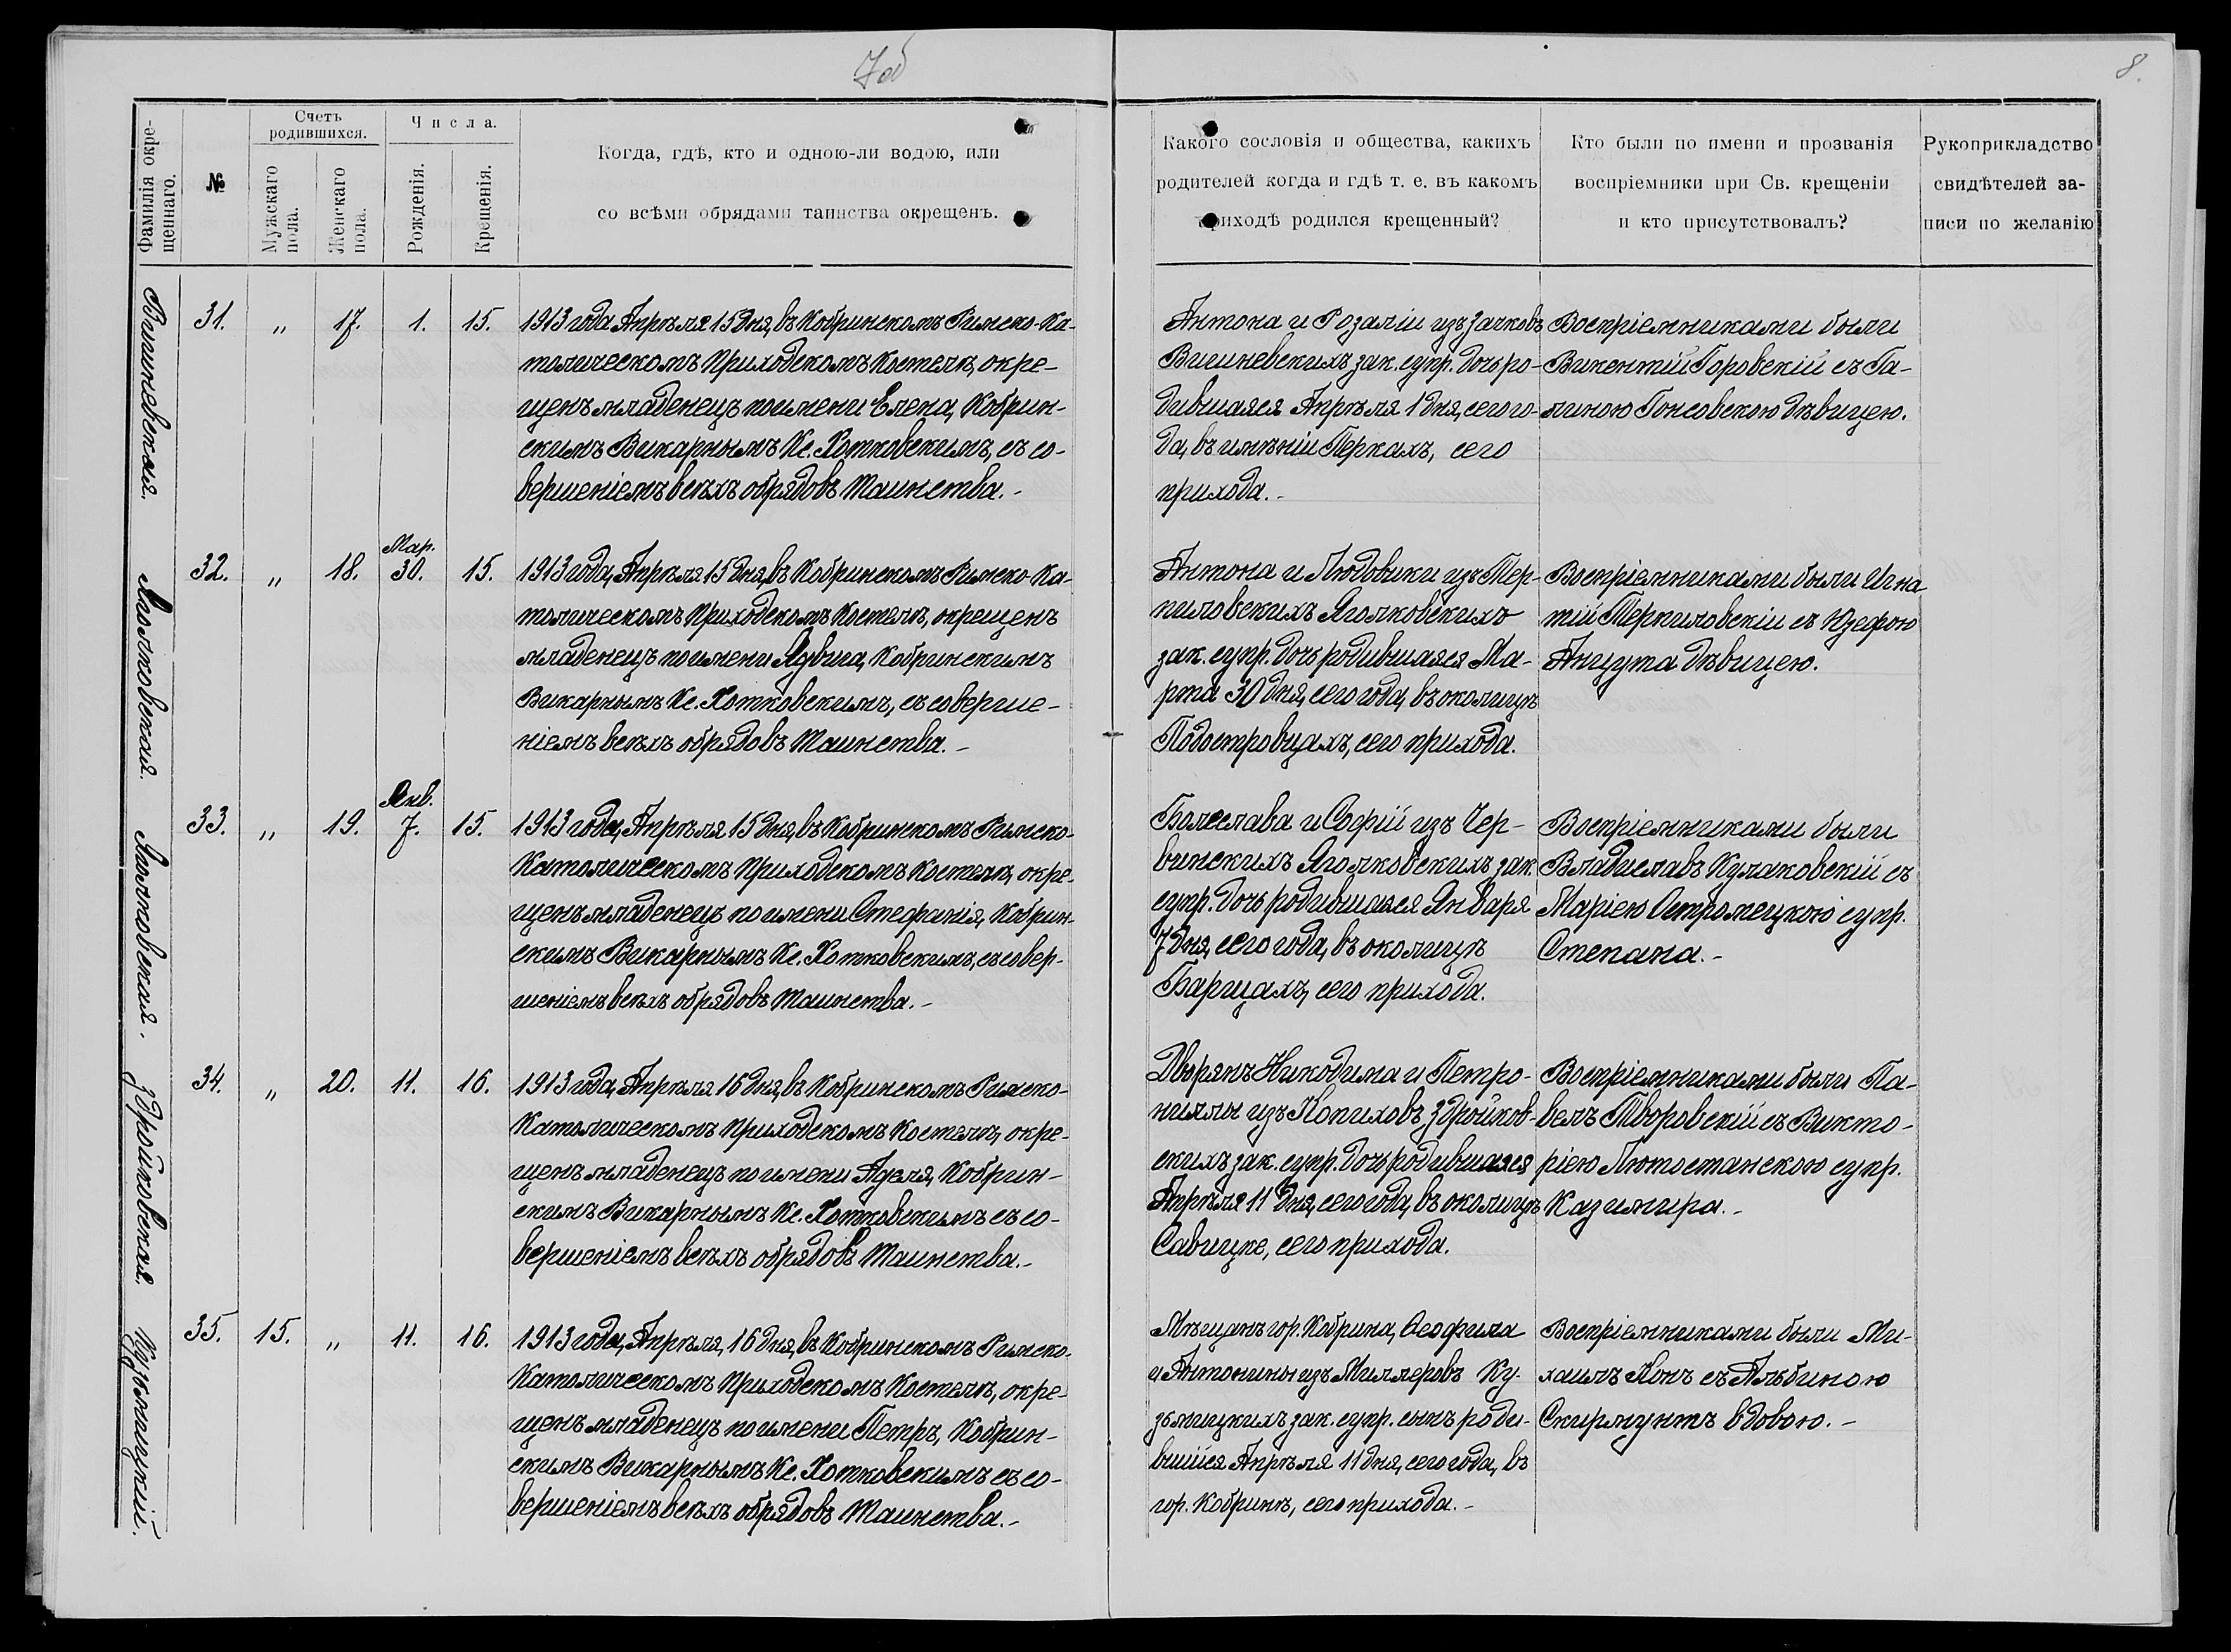 7об
8.
Фамилія окре-
щеннаго.
№
Счетъ
родившихся.
Мужскаго
пола.
Женскаго
пола.
Числа.
Рожденія.
Крещенія.
Когда, гдѣ, кто и одною-ли водою, или
со всѣми обрядами таинства окрещенъ.
Какого сословія и общества, какихъ
родителей когда и гдѣ т. е. въ какомъ
приходѣ родился крещенный?
Кто были по имени и прозванія
воспріемники при Св. крещеніи
и кто присутствовалъ?
Рукоприкладство
свидѣтелей за-
писи по желанію
Вишневская.
31. " 17. 1. 15.
1913 года Апрѣля 15 дня, въ Кобринскомъ Римско-Ка-
толическомъ Приходскомъ Костелѣ, окре-
щенъ младенецъ по имени Елена, Кобрин-
скимъ Викарнымъ Кс. Хотковскимъ, съ со-
вершеніемъ всѣхъ обрядовъ Таинства.-
Антона и Розаліи изъ Зачковъ
Вишневскихъ зак. супр. дочь ро-
дившаяся Апрѣля 1 дня, сего го-
да, въ имѣніи Перкахъ, сего
прихода.-
Воспріемниками были
Викентій Горовскій съ Га-
линою Гонсовскою дѣвицею.
Яголковская.
32. " 18. Мар.
30. 15.
1913 года, Апрѣля 15 дня, въ Кобринскомъ Римско-Ка-
толическомъ Приходскомъ Костелѣ, окрещенъ
младенецъ по имени Ядвига, Кобринскимъ
Викарнымъ Кс. Хотковскимъ, съ соверше-
ніемъ всѣхъ обрядовъ Таинства.-
Антона и Людовики изъ Тер-
пиловскихъ Яголковскихъ
зак. супр. дочь родившаяся Ма-
рта 30 дня, сего года, въ околицѣ
Подостровцахъ, сего прихода.
Воспріемниками были Игна-
тій Терпиловскій съ Юзефою
Анцута дѣвицею.
Яголковская.
33. " 19. Янв.
7. 15.
1913 года, Апрѣля 15 дня, въ Кобринскомъ Римско-
Католическомъ Приходскомъ Костелѣ, окре-
щенъ младенецъ по имени Стефанія, Кобрин-
скимъ Викарнымъ Кс. Хотковскимъ, съ совер-
шеніемъ всѣхъ обрядовъ Таинства.-
Болеслава и Софіи изъ Чер-
винскихъ Яголковскихъ зак.
супр. дочь родившаяся Января
7 дня, сего года, въ околицѣ
Барщахъ, сего прихода.
Воспріемниками были
Владиславъ Кулаковскій съ
Маріею Остромецкою супр.
Степана.-
Здройковская.
34. " 20. 11. 16.
1913 года, Апрѣля 16 дня, въ Кобринскомъ Римско-
Католическомъ Приходскомъ Костелѣ, окре-
щенъ младенецъ по имени Аделя, Кобрин-
скимъ Викарнымъ Кс. Хотковскимъ съ со-
вершеніемъ всѣхъ обрядовъ Таинства.-
Дворянъ Никодима и Петро-
нилы изъ Копиховъ Здройков-
скихъ зак. супр. дочь родившаяся
Апрѣля 11 дня, сего года, въ околицѣ
Савицке, сего прихода.
Воспріемниками были Па-
велъ Творовскій съ Викто-
ріею Лютостанскою супр.
Казимира.-
Кузьмицкій.
35. 15. " 11. 16.
1913 года, Апрѣля, 16 дня, въ Кобринскомъ Римско-
Католическомъ Приходскомъ Костелѣ, окре-
щенъ младенецъ по имени Петръ, Кобрин-
скимъ Викарнымъ Кс. Хотковскимъ съ со-
вершеніемъ всѣхъ обрядовъ Таинства.-
Мѣщанъ гор. Кобрина, Ѳеофила
и Антонины изъ Миллеровъ Ку-
зьмицкихъ зак. супр. сынъ роди-
вшійся Апрѣля 11 дня, сего года, въ
гор. Кобринѣ, сего прихода.-
Воспріемниками были Ми-
хаилъ Конъ съ Альбиною
Скирмунтъ вдовою.-